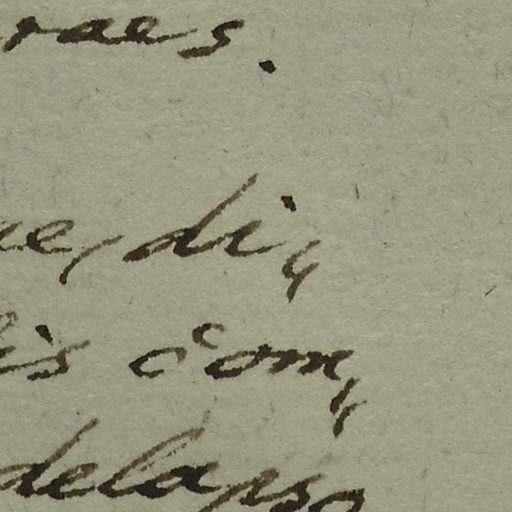 raes.
ae, di„
is com„
delapso